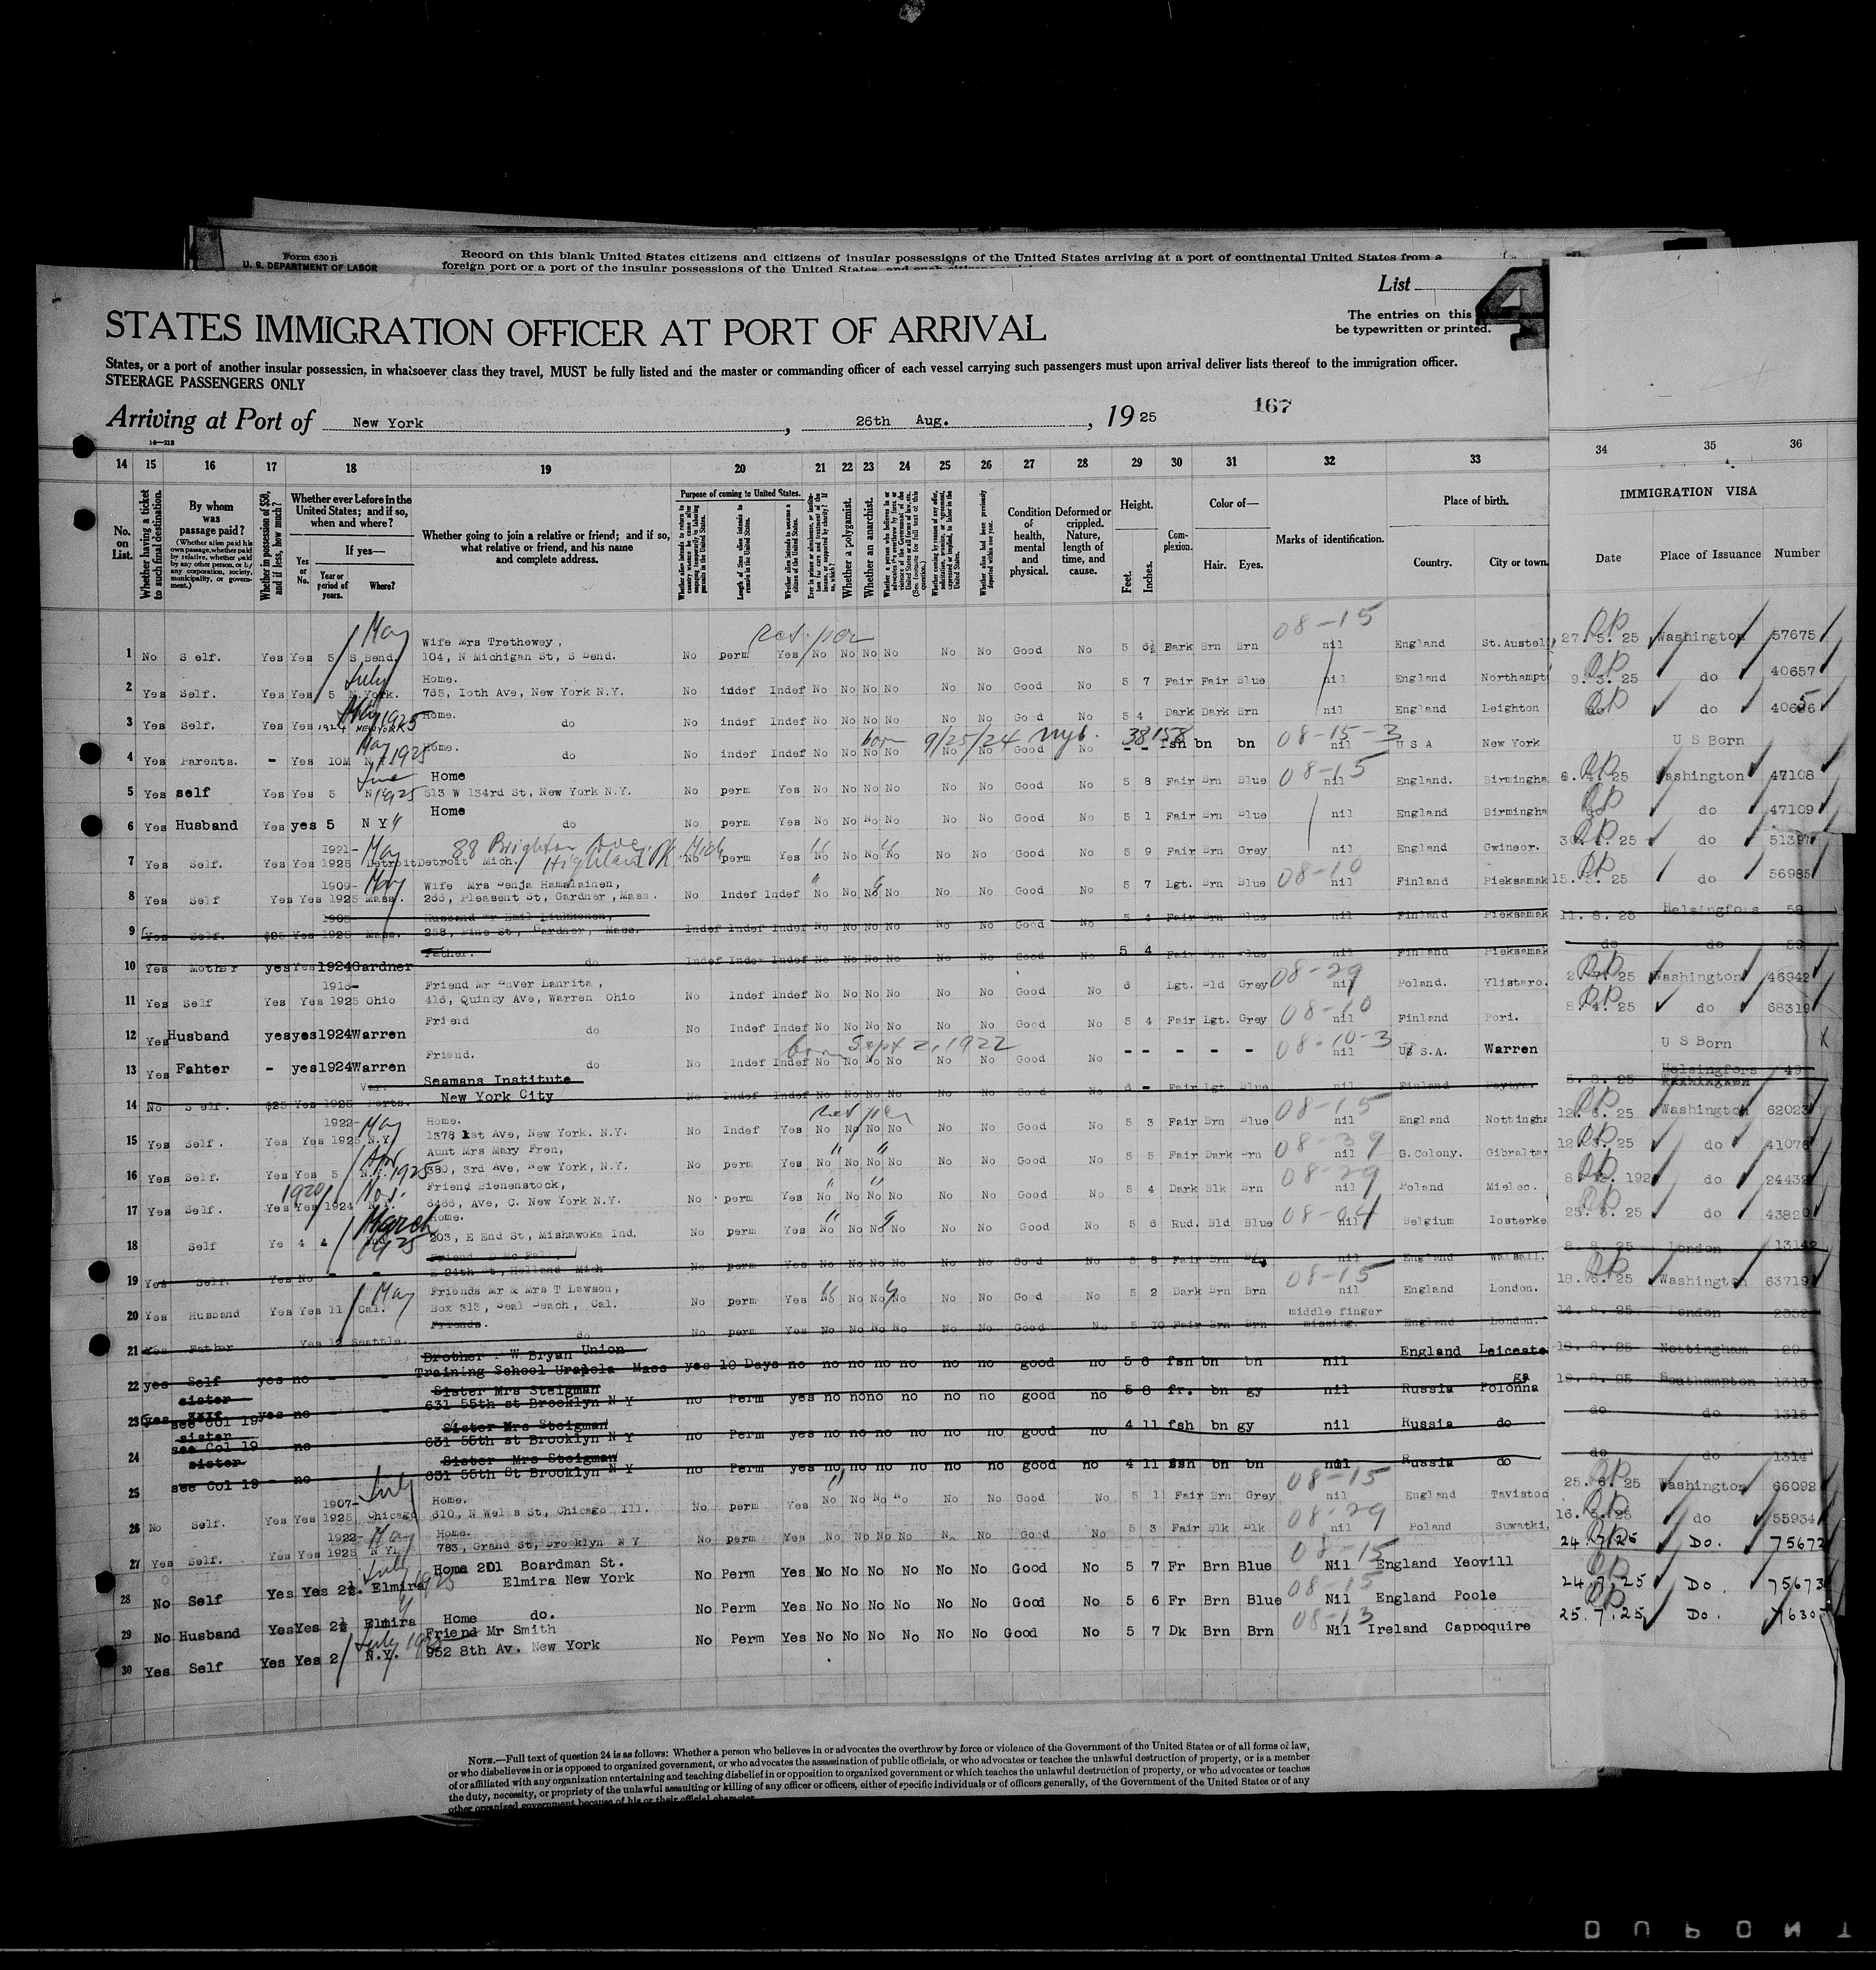 Form 630 B
U. S. DEPARTMENT OF LABOR
Record on this blank United States citizens and citizens of insular possessions of the United States arriving at a port of continental United States from a
foreign port or a port of the insular possessions of the United States, and such
List
4
The entries on this
be typewritten or printed.
STATES IMMIGRATION OFFICER AT PORT OF ARRIVAL
States, or a port of another insular possession, in whatsoever class they travel, MUST be fully listed and the master or commanding officer of each vessel carrying such passengers must upon arrival deliver lists thereof to the immigration officer.
STEERAGE PASSENGERS ONLY
Arriving at Port of New York, 26th Aug., 1925
167
14—213
14 15 16 17 18 19 20 21 22 23 24 25 26 27 28 29 30 31 32 33 34 35 36
No. on List.
Whether having a ticket to such final destination.
By whom was passage paid?
(Whether alien paid his own passage, whether paid by relative, whether paid by any other person, or by any corporation, society, municipality, or government.)
Whether in possession of $50, and if less, how much?
Whether ever before in the United States; and if so, when and where?
Yes or No.
If yes—
Year or period of years.
Where?
Whether going to join a relative or friend; and if so, what relative or friend, and his name and complete address.
Purpose of coming to United States.
Length of time alien intends to remain in the United States.
Whether a polygamist.
Whether an anarchist.
Condition of health, mental and physical.
Deformed or crippled. Nature, length of time, and cause.
Height.
Feet.
Inches.
Complexion.
Color of—
Hair.
Eyes.
Marks of identification.
Place of birth.
Country.
City or town.
IMMIGRATION VISA
Date
Place of Issuance
Number
1 No Self. Yes Yes 5 May S Bend. Wife Mrs Trethewey, 104, N Michigan St, S Bend. No perm Yes No No No No No No Good No 5 6½ Dark Brn Brn 08-15 nil England St.Austel 27.5.25 Washington 57675
2 Yes Self. Yes Yes 5 July N York. Home. 765, 10th Ave, New York N.Y. No indef Indef No No No No No No Good No 5 7 Fair Fair Blue nil England Northampt 9.3.25 do 40657
3 Yes Self. Yes Yes 1924 May 1925 NEW YORK Home. do No indef Indef No No No No No No Good No 5 4 Dark Dark Brn nil England Leighton do do 40656
4 Yes Parents. - Yes 10M May 1925 N Y Home. do No indef Indef born 9/25/24 nyc. No No No No No No Good No 38158 - - fsh bn bn 08-15-3 nil U S A New York U S Born
5 Yes self Yes Yes 5 June 1925 N Home 613 W 134rd St, New York N.Y. No perm Yes No No No No No No Good No 5 8 Fair Brn Blue 08-15 nil England. Birmingha 6.4.25 Washington 47108
6 Yes Husband Yes yes 5 N Y Home do No perm Yes No No No No No No Good No 5 1 Fair Brn Blue nil England Birmingha do do 47109
7 Yes Self. Yes Yes 1921-1925 May Detroit Detroit Mich. 88 Brighton Ave. Highland Pk Mich No perm Yes No No No No No Good No 5 9 Fair Brn Grey nil England Gwineor. 30.4.25 do 51397
8 Yes Self Yes Yes 1909-1925 May Mass. Wife Mrs Benja Hamalainen, 266, Pleasent St, Gardner, Mass. No Indef Indef No No No No No Good No 5 7 Lgt. Brn Blue 08-10 nil Finland Pieksamak 15.5.25 do 56985
9 Yes Self. $25 Yes 1925 Mass. Husband Mr Emil Liukkonen, 258, Pine St, Gardner, Mass. Indef Indef Indef No No No No No No Good No 5 4 Fair Brn Blue nil Finland Pieksamak 11.8.25 Helsingfors 58
10 Yes Mother yes Yes 1924 Gardner Father. do Indef Indef Indef No No No No No No Good No 5 4 Fair Brn Blue nil Finland Pieksamak do do 59
11 Yes Self Yes Yes 1925 Ohio Friend Mr Lanrita, 416, Quinby Ave, Warren Ohio No Indef Indef No No No No No No Good No 6 Lgt. Bld Grey 08-29 nil Poland. Ylistaro. 2.7.25 Washington 46942
12 Yes Husband yes yes 1924 Warren Friend do No Indef Indef No No No No No No Good No 5 4 Fair Lgt. Grey 08-10 nil Finland Pori. 8.4.25 do 68319
13 Yes Fahter - yes 1924 Warren Friend. do No Indef Indef born Sept 2, 1922 No No No No No No Good No - - - - - 08-10-3 nil U S.A. Warren U S Born X
14 No Self. $25 Yes 1925 Ports. Seamans Institute New York City No Indef Indef No No No No No No Good No 6 - Fair Lgt. Blue nil Finland 5.8.25 Helsingfors 49
15 Yes Self. Yes Yes 1922-1925 May N.Y. Home. 1378, 1st Ave, New York. N.Y. No Indef Yes No No No No No No Good No 5 3 Fair Brn Blue 08-15 nil England Nottingha 12.6.25 Washington 62023
16 Yes Self. Yes Yes 5 Apr 1925 N.Y. Aunt Mrs Mary Fren, 380, 3rd Ave, New York, N.Y. No perm Yes No No No No No No Good No 5 5 Fair Dark Brn 08-39 nil G.Colony. Gibraltar 12.3.25 do 41076
17 Yes Self. Yes Yes 1920 1924 Nov. N.Y. Friend Bienenstock, 6466, Ave, C. New York N.Y. No perm Yes No No No No No No Good No 5 4 Dark Blk Brn 08-29 nil Poland Mielec. 8.12.192 do 24432
18 Self Ye 4 4 March 1925 Ind. Home. 203, E End St, Mishawoka Ind. No perm Yes No No No No No No Good No 5 6 Rud. Bld Blue 08-04 nil Belgium Iosterke 25.3.25 do 43820
19 Yes Self. Yes No - - Friend. D Mc Fall. E 24th St, Holland Mich No perm Yes No No No No No No Good No 5 8 Fair Brn nil England Walsall. 8.8.25 London 13142
20 Yes Husband Yes Yes 11 May Cal. Friends Mr & Mrs T Lawson, Box 313, Seal Beach, Cal. No perm Yes No No No No No No Good No 5 2 Dark Brn Brn 08-15 nil England London. 18.6.25 Washington 63719
21 Yes Father Yes 12 Seattle. Friends. do No perm Yes No No No No No No Good No 5 10 Fair Brn Brn middle finger missing. England London. 14.8.25 London 2352
22 yes Self yes no - - Brother F W Bryan Union Training School Mass yes 10 Days no no no no no no no good no 5 6 fsh bn bn nil England Leiceste 18.8.25 Nottingham 29
23 yes sister see Col 19 yes no - - Sister Mrs Steigman 631 55th st Brooklyn N Y no Perm yes no no no no no no good no 5 8 fr. bn gy nil Russia Polonna 19.8.25 Southampton 1313
24 sister see Col 19 - no Sister Mrs Stoigman 631 55th st Brooklyn N Y no Perm yes no no no no no no good no 4 11 fsh bn gy nil Russia do do do 1315
25 sister see Col 19 - no Sister Mrs Stoigman 631 55th St Brooklyn N Y no Perm yes no no no no no no good no 4 11 fsh bn bn nil Russia do do do 1314
26 No Self. Yes Yes 1907-1925 July Chicago Home. 610, N Wells St, Chicago Ill. No perm Yes No No No No No No Good No 5 11 Fair Brn Grey 08-15 nil England Tavistoc 25.6.25 Washington 66092
27 Yes Self. Yes Yes 1922-1925 May N Y Home. 783, Grand St, Brooklyn N Y No perm Yes No No No No No No Good No 5 3 Fair Blk Blk 08-29 nil Poland Suwatki, 16.5.25 do 55934
28 No Self Yes Yes 2½. July 1925 Elmira Home 201 Boardman St. Elmira New York No Perm Yes No No No No No No Good No 5 7 Fr Brn Blue 08-15 Nil England Yeovill 24.7.25 Do. 75672
29 No Husband Yes Yes 2½ Elmira Home do. No Perm Yes No No No No No No Good No 5 6 Fr Brn Blue 08-15 Nil England Poole 24.7.25 Do. 75673
30 Yes Self Yes Yes 2 July 1925 N.Y. Friend Mr Smith 952 8th Av. New York No Perm Yes No No No No No No Good No 5 7 Dk Brn Brn 08-13 Nil Ireland Cappoquire 25.7.25 Do. 7630
NOTE.—Full text of question 24 is as follows: Whether a person who believes in or advocates the overthrow by force or violence of the Government of the United States or of all forms of law,
or who disbelieves in or is opposed to organized government, or who advocates the assassination of public officials, or who advocates or teaches the unlawful destruction of property, or is a member
of or affiliated with any organization entertaining and teaching disbelief in or opposition to organized government or which teaches the unlawful destruction of property, or who advocates or teaches
the duty, necessity, or propriety of the unlawful assaulting or killing of any officer or officers, either of specific individuals or of officers generally, of the Government of the United States or of any
other organized government because of his or their official character.
DUPONT